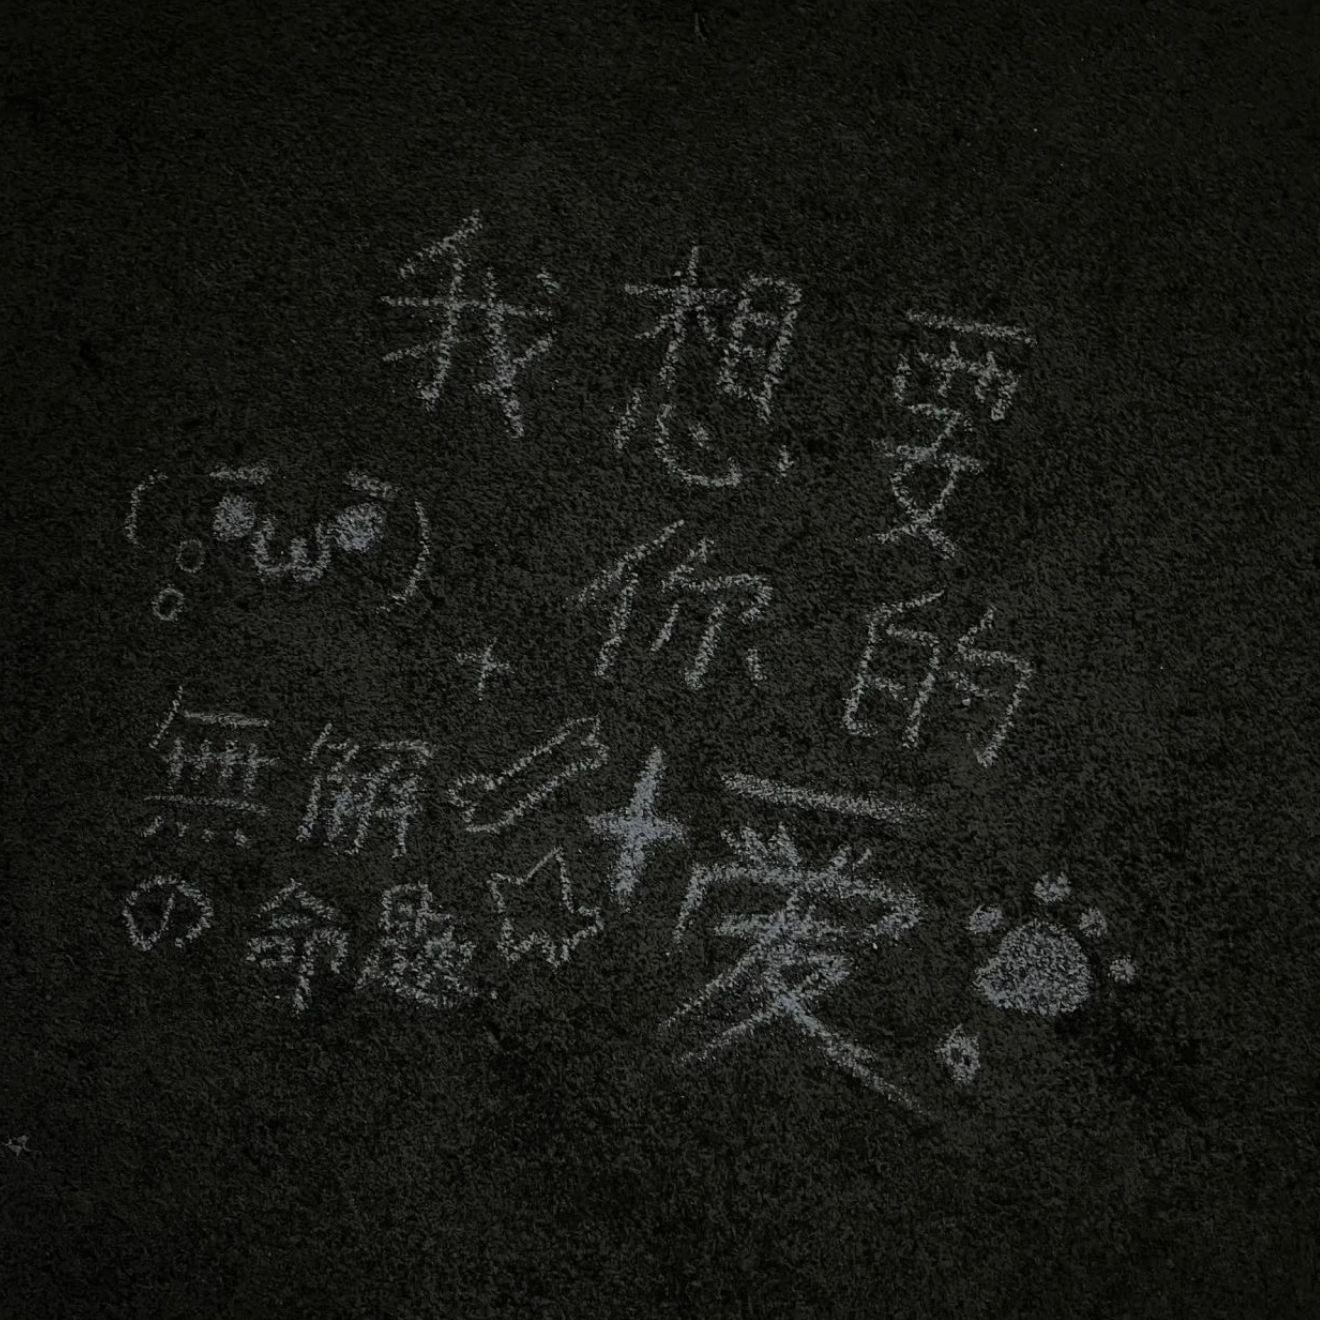 我想要
(•ω•)
你的
無解
愛
の命題